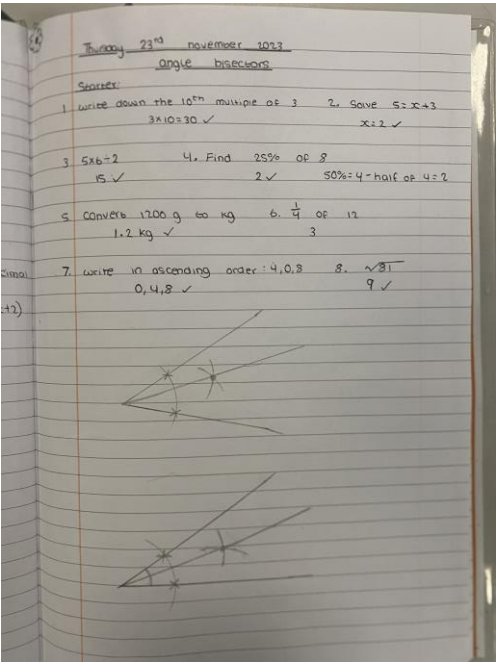 Thursday 23rd november 2023
angle bisectors
Starter:
1. write down the 10th multiple of 3 2. Solve 5=x+3
3×10=30 ✓ x=2 ✓
3. 5x6÷2 4. Find 25% of 8
15 ✓ 2 ✓ 50%=4-half of 4=2
5. convert 1200 g to kg 6. 1/4 of 12
1.2 kg ✓ 3
7. write in ascending order: 4,0,8 8. √81
0,4,8 ✓ 9 ✓